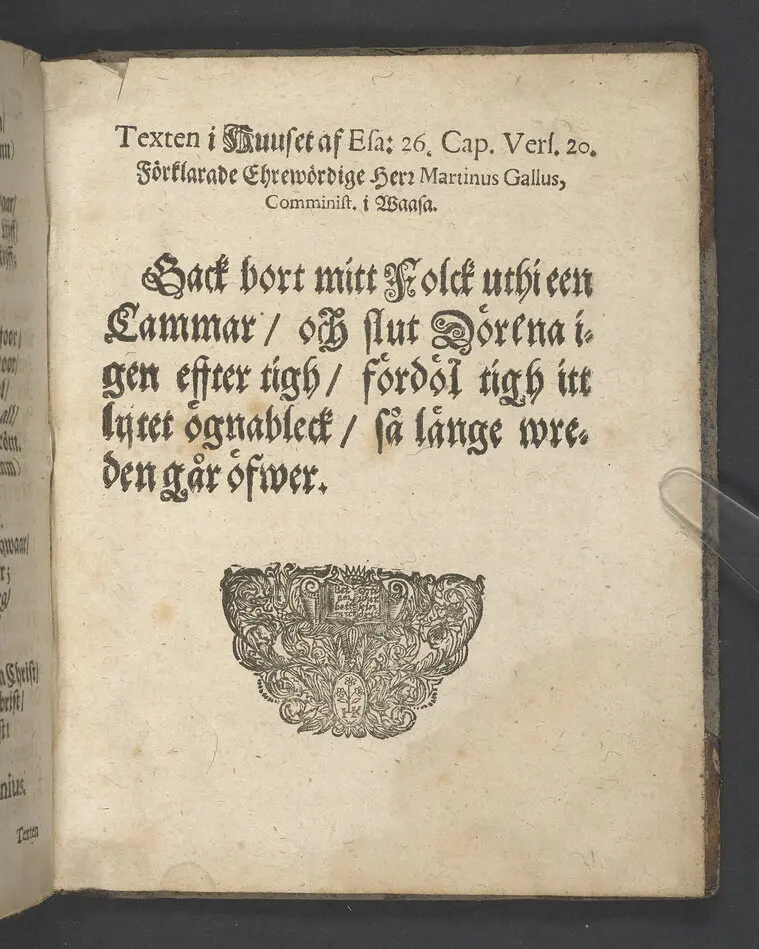 Texten i Huuset af Esa: 26. Cap. Vers. 20.
Förklarade Ehrewördige Herr Martinus Gallus,
Comminist. i Waasa.
Gack bort mitt Folck uthi een
Cammar / och slut Dörena i-
gen effter tigh / fördöl tigh itt
lijtet ögnableck / så länge wre-
den går öfwer.
nius.
Texten